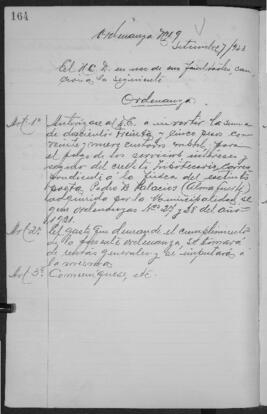 164
Ordenanza Nº 9
Setiembre 7/922
El H. C. D. en uso de sus facultades san
ciona la siguiente
Ordenanza.
Art. 1º Autorízase al D. E. a invertir la suma
de doscientos treinta y cinco pesos con
veinte y nueve centavos m/nl, para
el pago de los servicios intereses
seguro del crédito hipotecario corres
pondiente a la finca del extinto
poeta Pedro B. Palacios (Almafuerte)
adquirida por la Municipalidad se
gún ordenanzas Nos 27 y 28 del año
1921.
Art. 2º El gasto que demande el cumplimiento
de la presente ordenanza, se tomará
de rentas generales y se imputará a
la misma.
Art. 3º Comuníquese, etc.